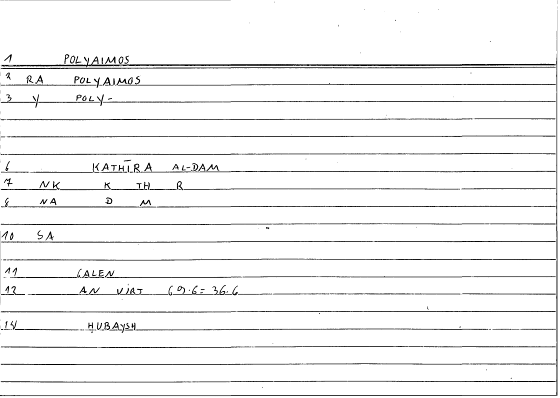 1 POLYAIMOS
2 RA POLYAIMOS
3 Y POLY-
6 KATHĪRA AL-DAM
7 NK K TH R
8 NA D M
10 SA
11 GALEN
12 AN VIRT 69.6 = 36.6
14 ḤUBAYSH